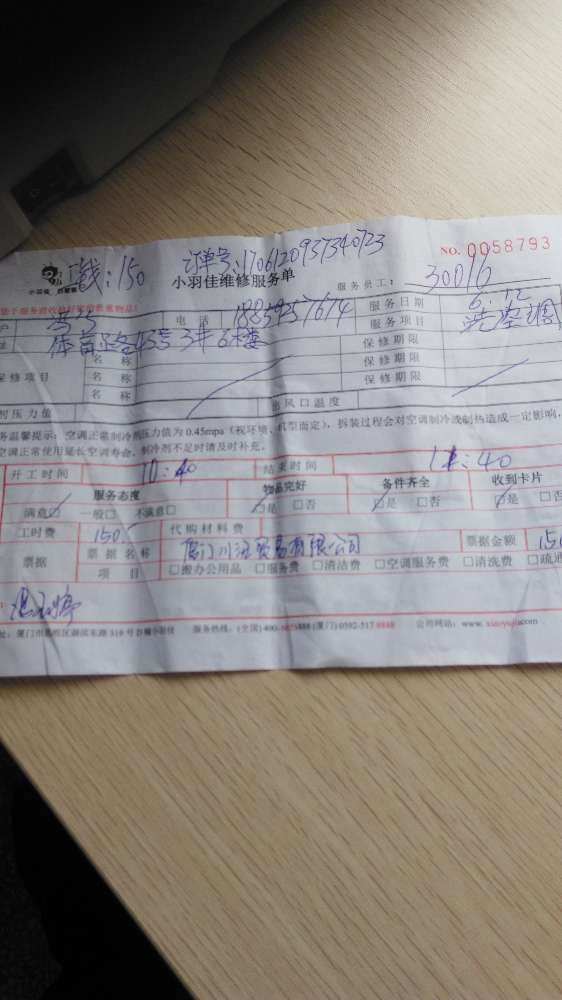 订单号:1706120937340723
:150
NO. 0058793
小羽佳维修服务单
服务员工: 30016
电话 服务日期 6.12
服务项目 洗空调
体育路45号3# 6楼
名称 保修期限
保修项目 名称 保修期限
名称 保修期限
剂压力值 出风口温度
务温馨提示: 空调正常制冷剂压力值为 0.45mpa (视环境、机型而定), 拆装过程会对空调制冷或制热造成一定影响,
空调正常使用延长空调寿命, 制冷剂不足时请及时补充。
开工时间 10:40 结束时间 11:40
服务态度 物品完好 备件齐全 收到卡片
满意□ 一般□ 不满意□ □是 □否 □是 □否 □是 □否
工时费 150 代购材料费
票据 票据名称 厦门川 贸易有限公司 票据金额 150
项目 □办公用品 □服务费 □清洁费 □空调服务费 □清洗费 □疏通
址: 厦门市思明区湖滨东路 319 号 服务热线: (全国) 400- 888 (厦门) 0592-517 8888 公司网站: www. xiaoyujia.com